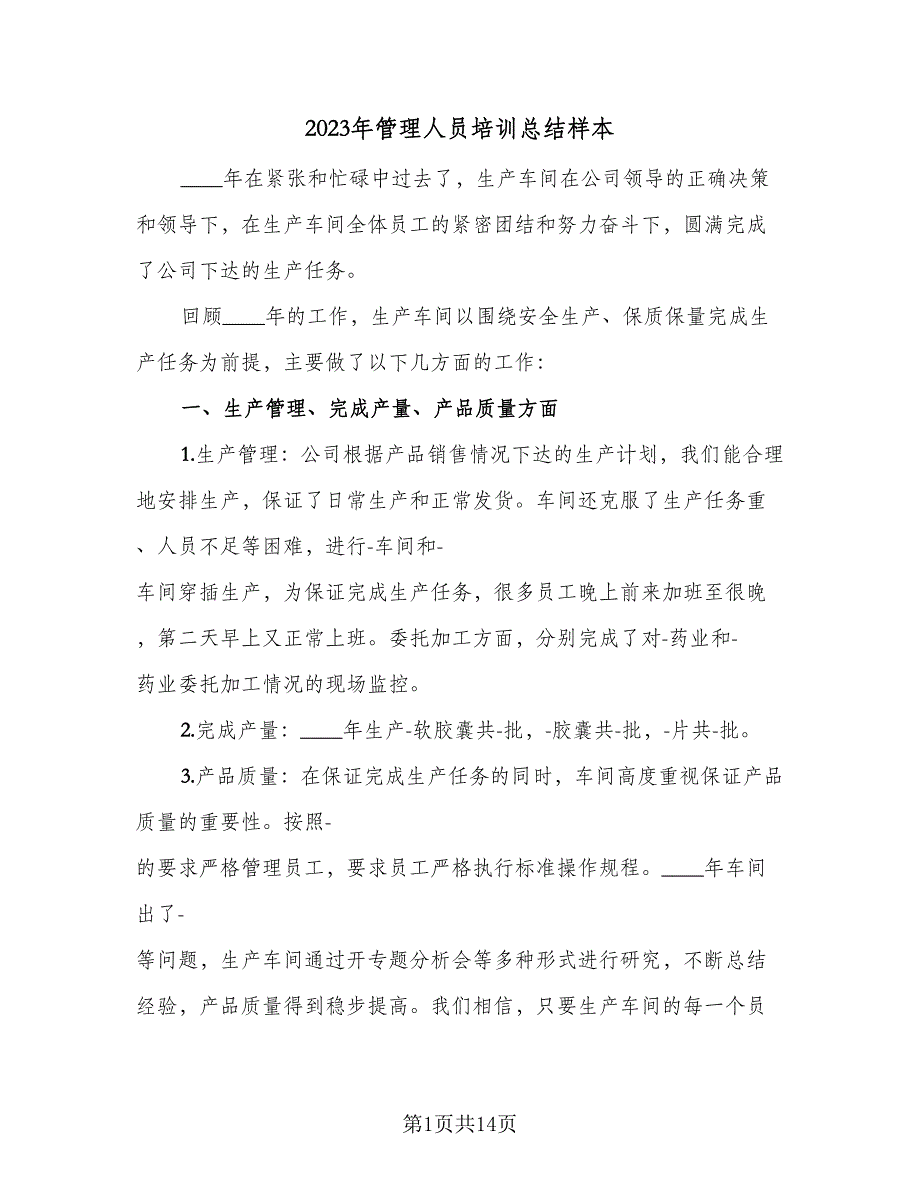 2023年管理人员培训总结样本
____年在紧张和忙碌中过去了，生产车间在公司领导的正确决策
和领导下，在生产车间全体员工的紧密团结和努力奋斗下，圆满完成
了公司下达的生产任务。
回顾____年的工作，生产车间以围绕安全生产、保质保量完成生
产任务为前提，主要做了以下几方面的工作：
一、生产管理、完成产量、产品质量方面
1.生产管理：公司根据产品销售情况下达的生产计划，我们能合理
地安排生产，保证了日常生产和正常发货。车间还克服了生产任务重
、人员不足等困难，进行-车间和-
车间穿插生产，为保证完成生产任务，很多员工晚上前来加班至很晚
，第二天早上又正常上班。委托加工方面，分别完成了对-药业和-
药业委托加工情况的现场监控。
2.完成产量：____年生产-软胶囊共-批，-胶囊共-批，-片共-批。
3.产品质量：在保证完成生产任务的同时，车间高度重视保证产品
质量的重要性。按照-
的要求严格管理员工，要求员工严格执行标准操作规程。____年车间
出了-
等问题，生产车间通过开专题分析会等多种形式进行研究，不断总结
经验，产品质量得到稳步提高。我们相信，只要生产车间的每一个员
第1页共14页